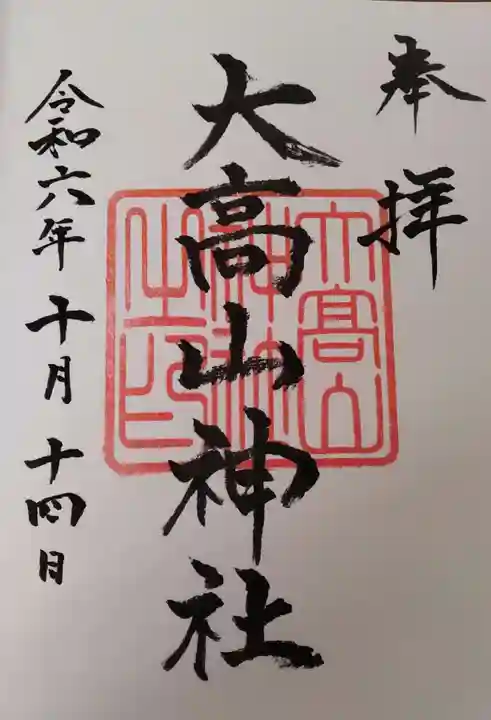 奉拝
大高山神社
大高山
神社
之印
令和六年十月十四日